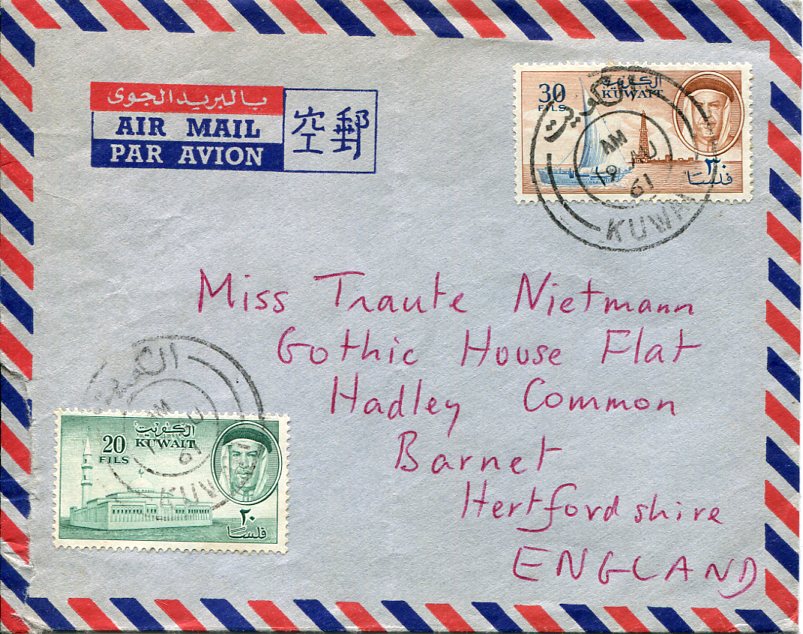 بالبريد الجوى
AIR MAIL
PAR AVION
空郵
الكويت
KUWAIT
30
FILS
٣٠
فلسا
الكويت
AM
19 AU
61
KUW
Miss Traute Nietmann
Gothic House Flat
Hadley Common
Barnet
Hertfordshire
ENGLAND
الكويت
AM
AU
61
KUW
الكويت
KUWAIT
20
FILS
٢٠
فلسا